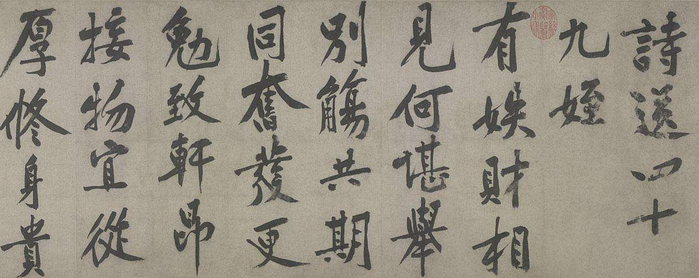 詩送四十
九姪
有娛財相
見何堪舉
別觴共期
同奮發更
勉致軒昂
接物宜從
厚修身貴